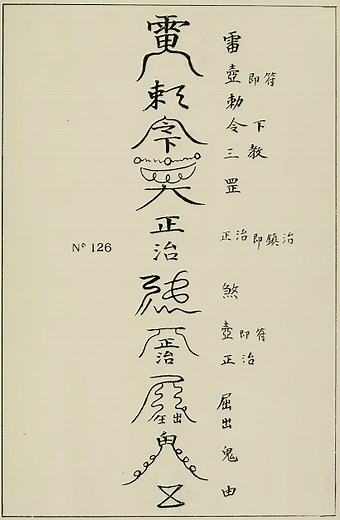 雷
勅
令
下
正
治
正
治
出
Nº 126
雷
壺即符
勅
令下
三教
罡
正治即鎮治
煞
壺即符
正治
屈
出
鬼
由